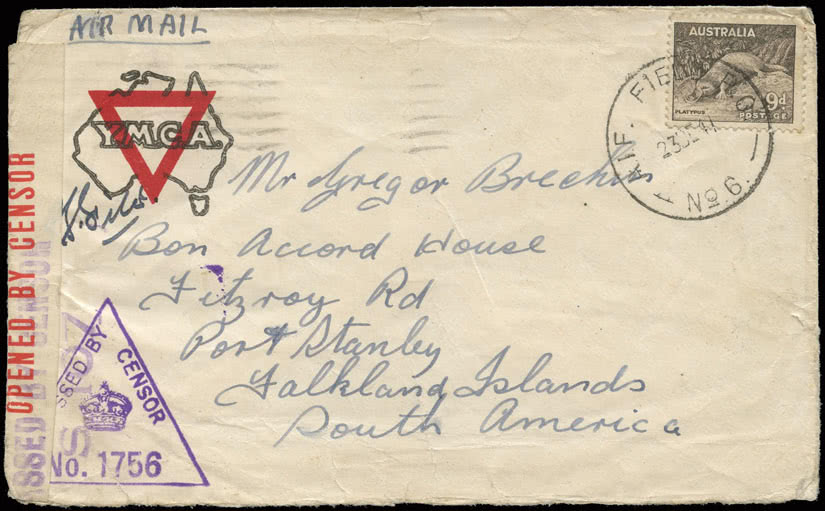 AIR MAIL
AUSTRALIA
9d
PLATYPUS
POSTAGE
A.I.F. FIELD P.O.
No 6.
Y.M.C.A.
Mr Gregor Brechin
Bon Accord House
Fitzroy Rd
Port Stanley
Falkland Islands
South America
OPENED BY CENSOR
SSED BY CENSOR
SSED BY CENSOR
No. 1756